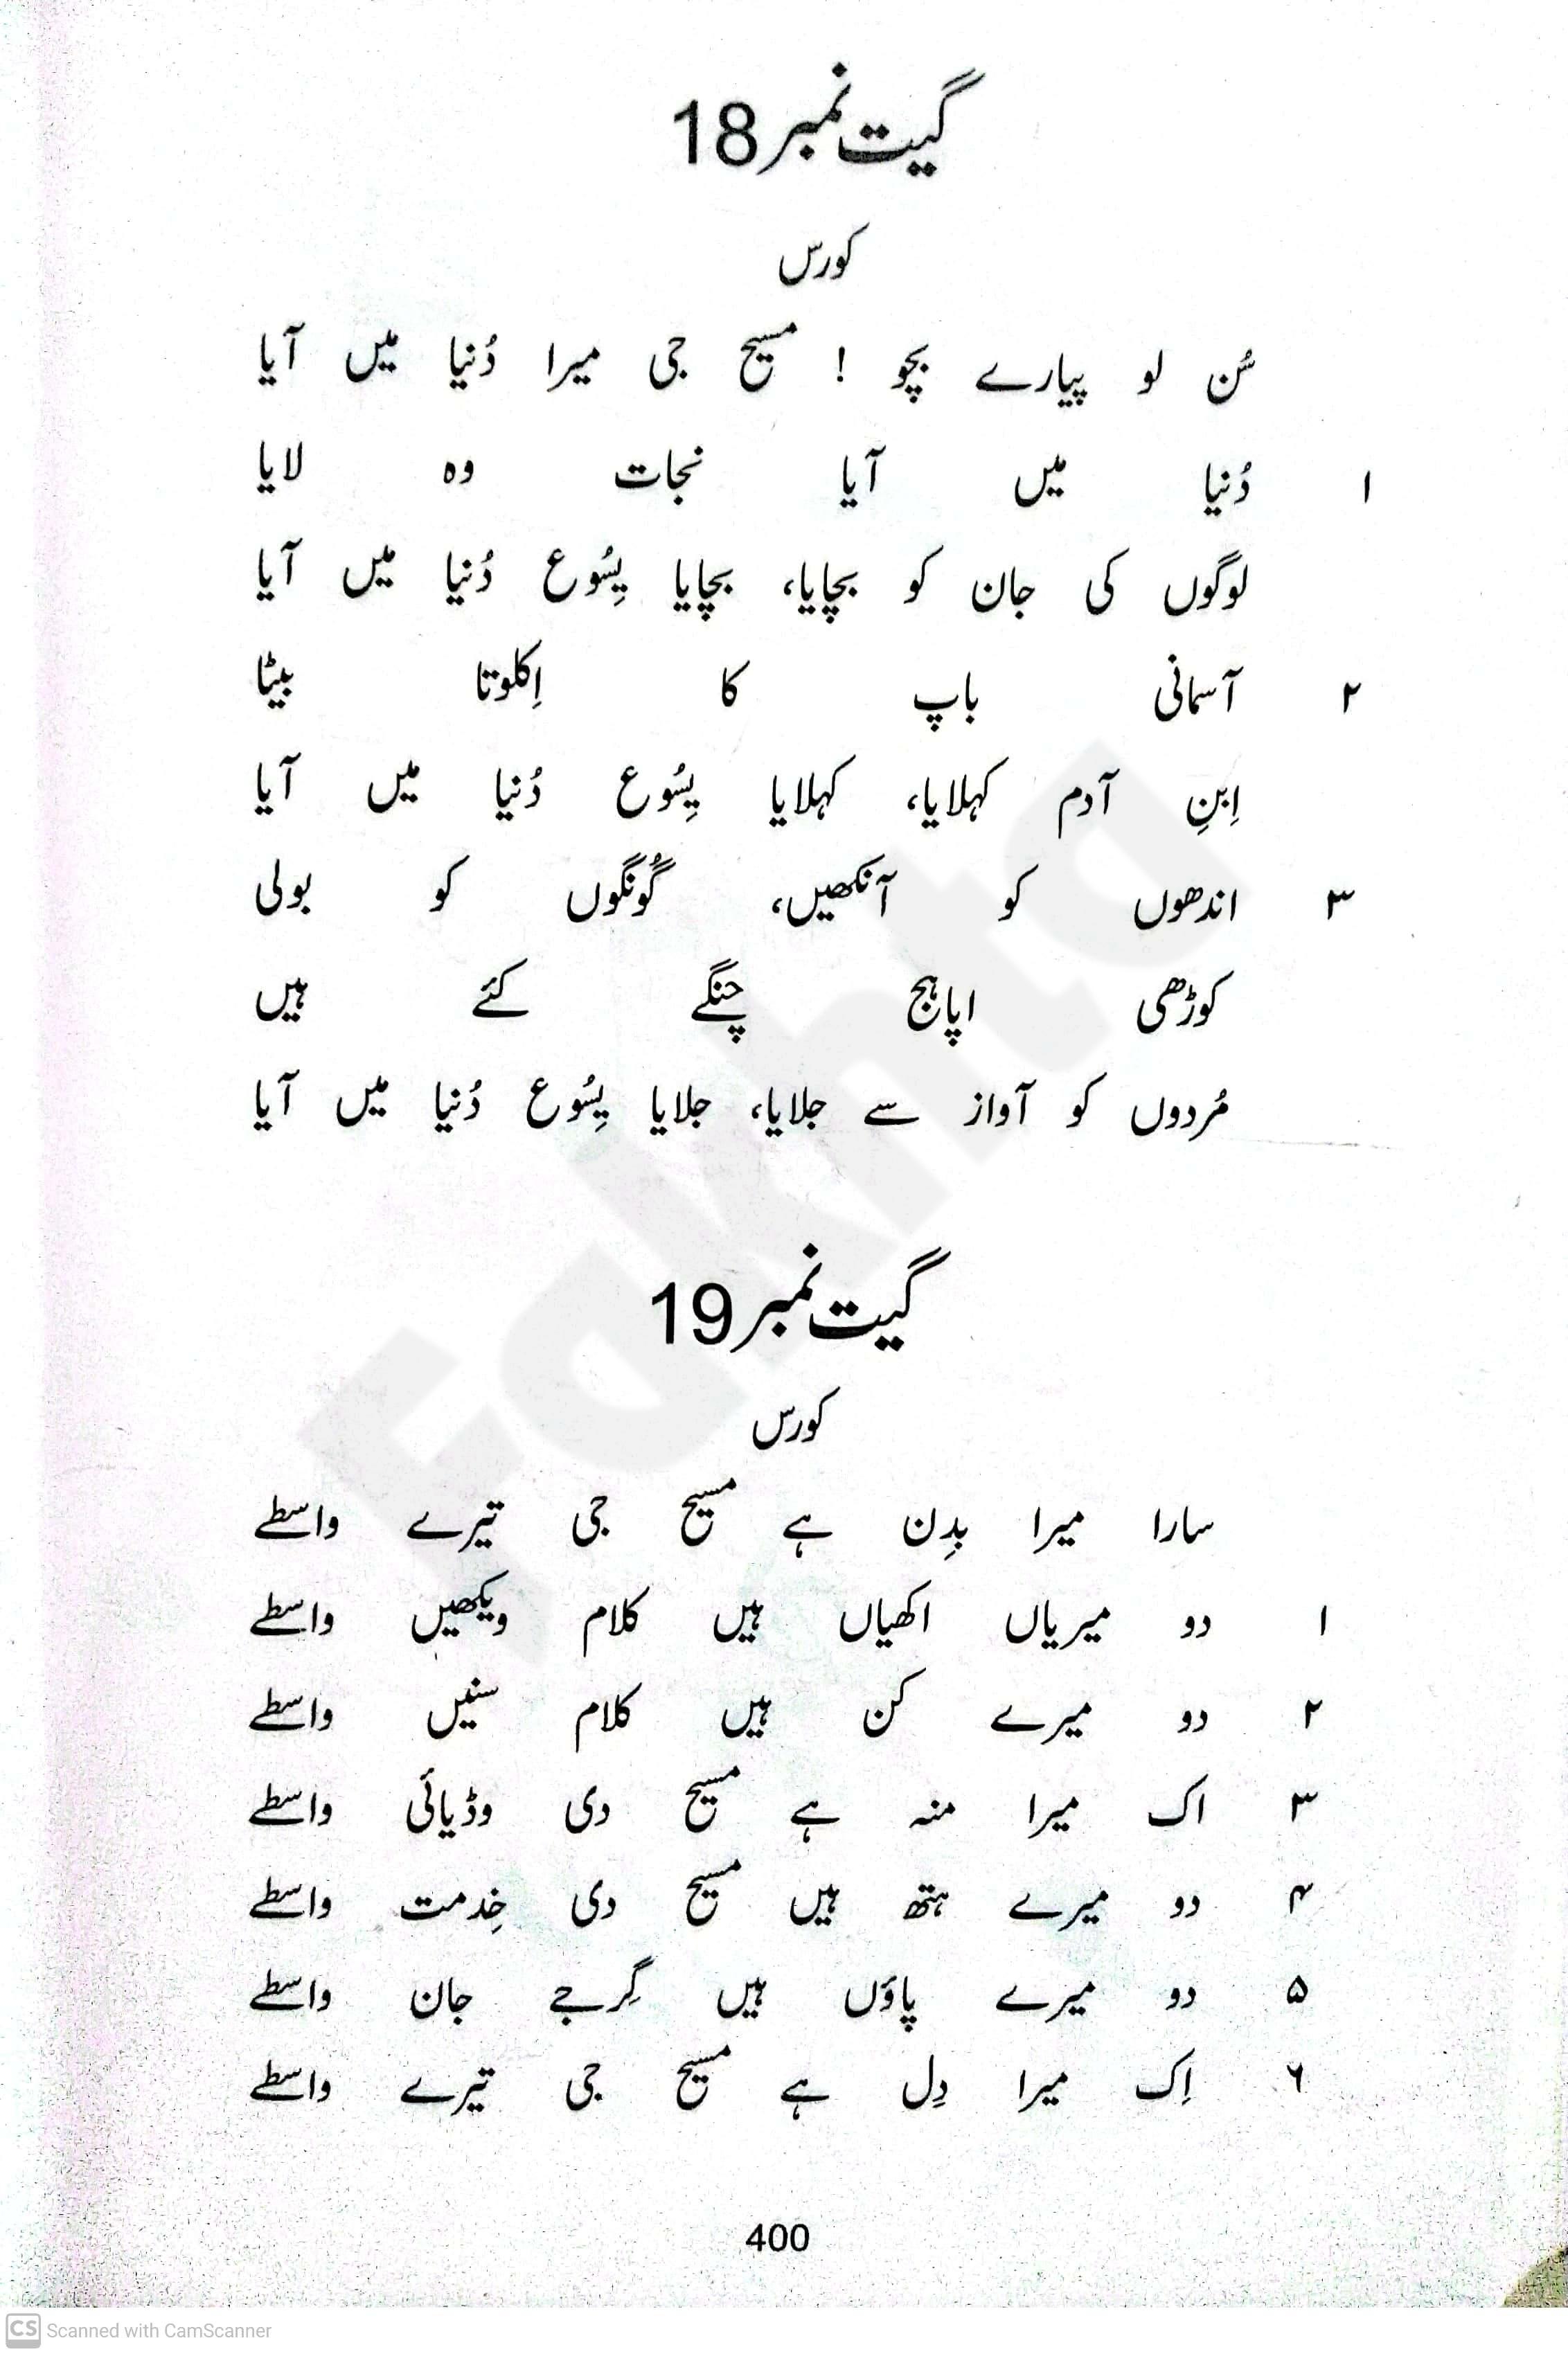 گیت نمبر 18
کورس
سُن لو پیارے بچو ! مسیح جی میرا دُنیا میں آیا
۱ دُنیا میں آیا نجات وہ لایا
لوگوں کی جان کو بچایا، بچایا یِسُوع دُنیا میں آیا
۲ آسمانی باپ کا اِکلوتا بیٹا
اِبنِ آدم کہلایا، کہلایا یِسُوع دُنیا میں آیا
۳ اندھوں کو آنکھیں، گُونگوں کو بولی
کوڑھی اپاہج چنگے کئے ہیں
مُردوں کو آواز سے جلایا، جلایا یِسُوع دُنیا میں آیا
گیت نمبر 19
کورس
سارا میرا بدِن ہے مسیح جی تیرے واسطے
۱ دو میریاں اکھیاں ہیں کلام ویکھیں واسطے
۲ دو میرے کن ہیں کلام سنیں واسطے
۳ اک میرا منہ ہے مسیح دی وڈیائی واسطے
۴ دو میرے ہتھ ہیں مسیح دی خِدمت واسطے
۵ دو میرے پاؤں ہیں گِرجے جان واسطے
۶ اِک میرا دِل ہے مسیح جی تیرے واسطے
400
Fakhta
CS Scanned with CamScanner